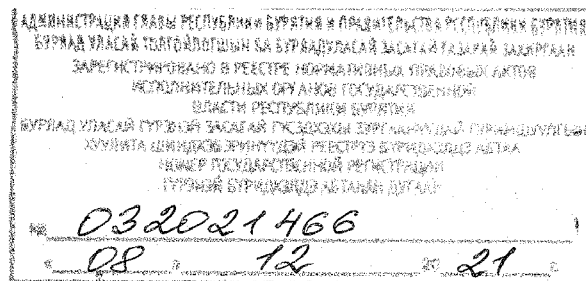 АДМИНИСТРАЦИЯ ГЛАВЫ РЕСПУБЛИКИ БУРЯТИЯ И ПРАВИТЕЛЬСТВА РЕСПУБЛИКИ БУРЯТИЯ
БУРЯАД УЛАСАЙ ТОЛГОЙЛОГШЫН БА БУРЯАД УЛАСАЙ ЗАСАГАЙ ГАЗАРАЙ ЗАХИРГААН
ЗАРЕГИСТРИРОВАНО В РЕЕСТРЕ НОРМАТИВНЫХ ПРАВОВЫХ АКТОВ
ИСПОЛНИТЕЛЬНЫХ ОРГАНОВ ГОСУДАРСТВЕННОЙ
ВЛАСТИ РЕСПУБЛИКИ БУРЯТИЯ
БУРЯАД УЛАСАЙ ГҮРЭНЭЙ ЗАСАГАЙ ГҮЙСЭДХЭХЫ
РЕЕСТРТЭ
НОМЕР ГОСУДАРСТВЕННОЙ РЕГИСТРАЦИИ
ГҮРЭНЭЙ ДУГААР
№ 032021466
« 08 » 12 20 21 г.